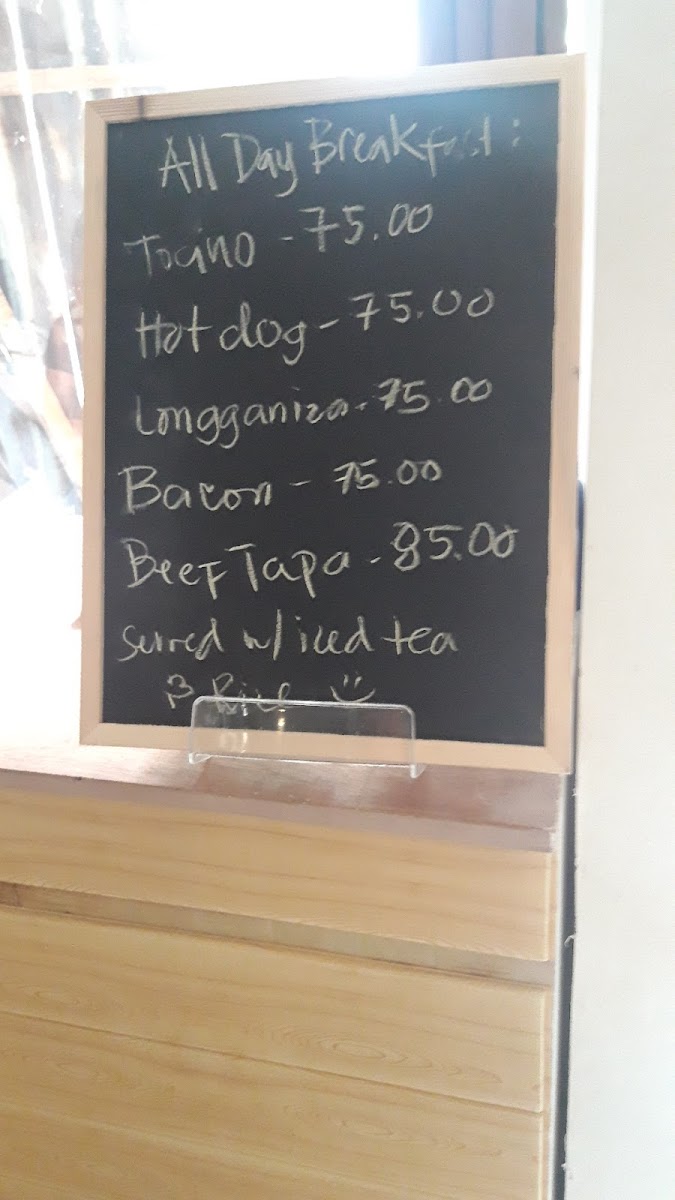 All Day Breakfast:
Tocino - 75.00
Hot dog - 75.00
Longganiza - 75.00
Bacon - 75.00
Beef Tapa - 85.00
served w/ iced tea
& Rice